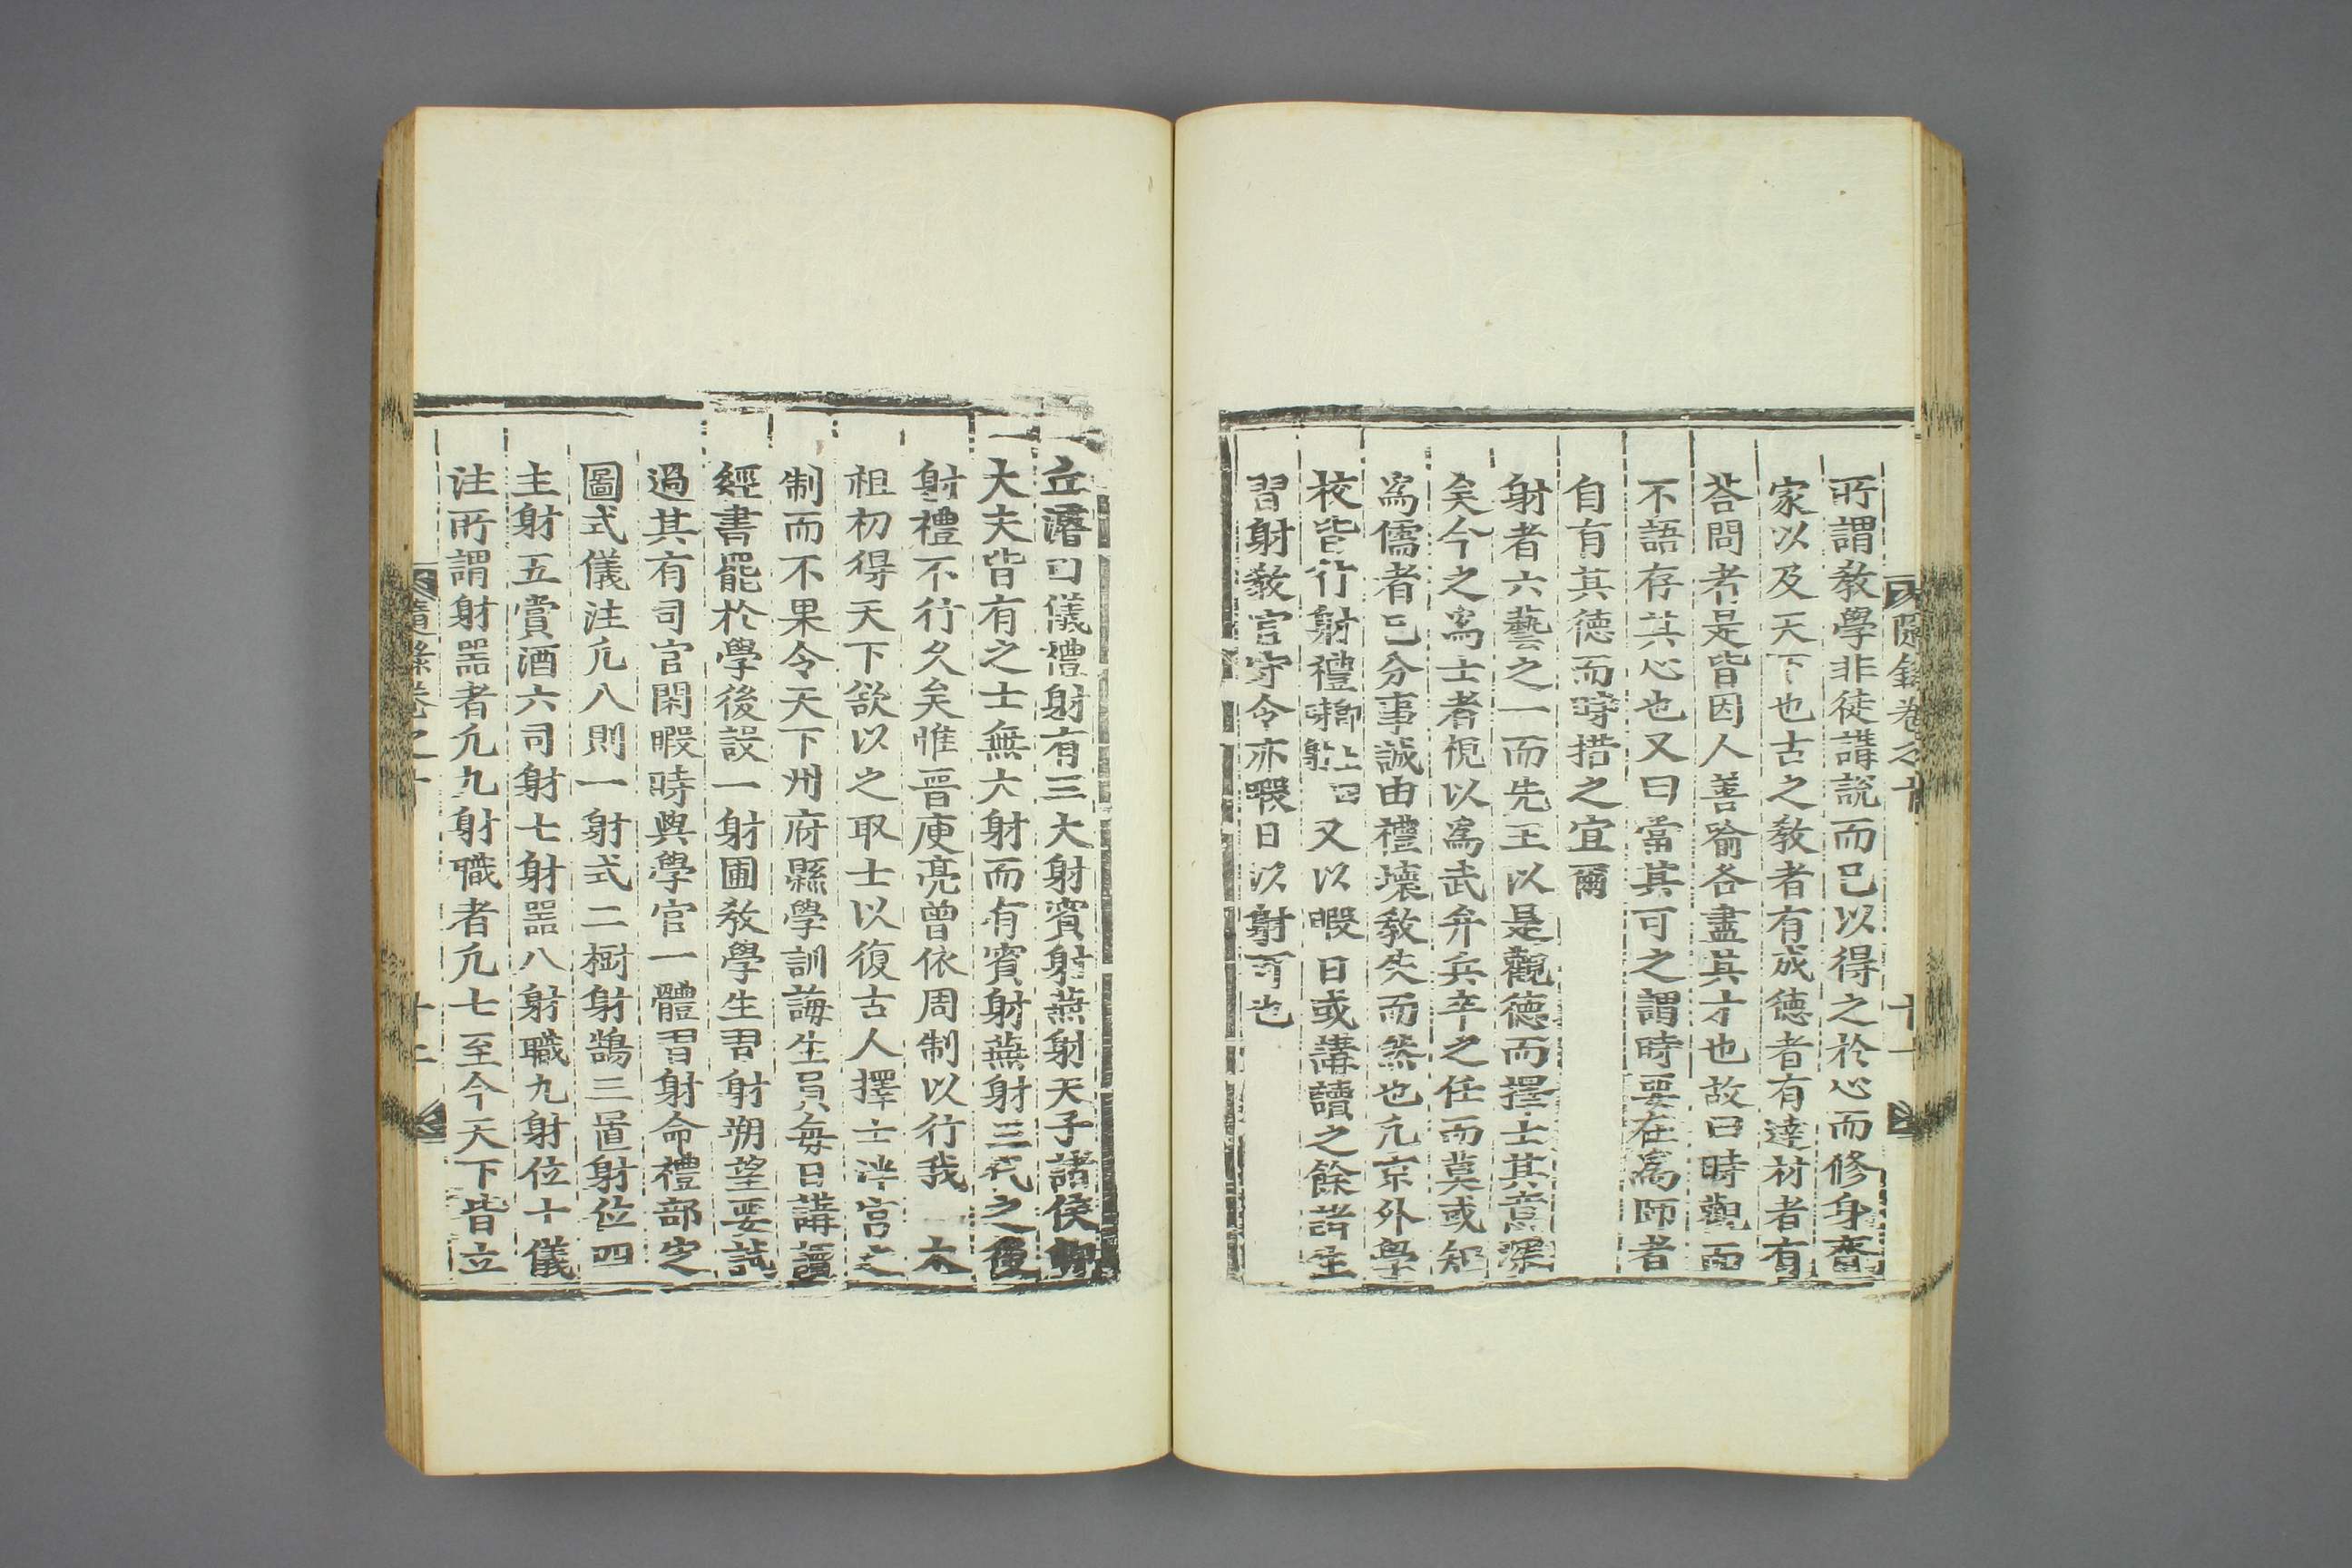 隨錄卷之十
十一
所謂敎學非徒講說而已以得之於心而修身齊
家以及天下也古之敎者有成德者有達材者有
荅問者是皆因人善喩各盡其才也故曰時觀而
不語存其心也又曰當其可之謂時要在爲師者
自有其德而時措之宜爾
射者六藝之一而先王以是觀德而擇士其意深
矣今之爲士者視以爲武弁兵卒之任而莫或知
爲儒者已分事誠由禮壞敎失而然也凡京外學
校皆行射禮又以暇日或講讀之餘諸生
習射敎官守令亦暇日以射可也
丘濬曰儀禮射有三大射賓射燕射天子諸侯卿
大夫皆有之士無大射而有賓射燕射三代之後
射禮不行久矣惟晋庾亮曾依周制以行我 太
祖初得天下欲以之取士以復古人擇士泮宮之
制而不果令天下州府縣學訓誨生員每日講讀
經書罷於學後設一射圃敎學生習射朔望要試
過其有司官閑暇時與學官一體習射命禮部定
圖式儀注凡八則一射式二樹射鵠三置射位四
主射五賞酒六司射七射器八射職九射位十儀
注所謂射器者凡九射職者凡七至今天下皆立
隨錄卷之十
十二